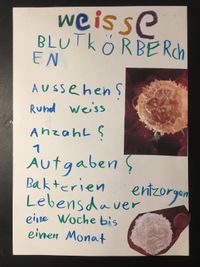 weisse
BLUTKÖRBERCH
EN
Aussehen?
Rund weiss
Anzahl?
1
Aufgaben?
Bakterien entzorgen
Lebensdauer
eine Woche bis
einen Monat